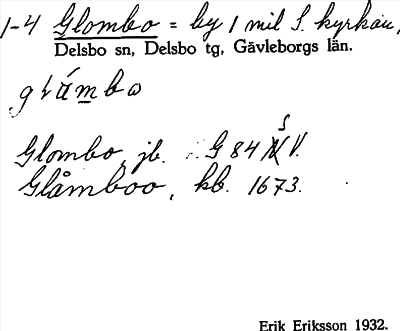 1-4 Glombo = by 1 mil S. kyrkan,
Delsbo sn, Delsbo tg, Gävleborgs län.
Glombo, jb. G 84 S V.
Glåmboo, kb. 1673.
Erik Eriksson 1932.